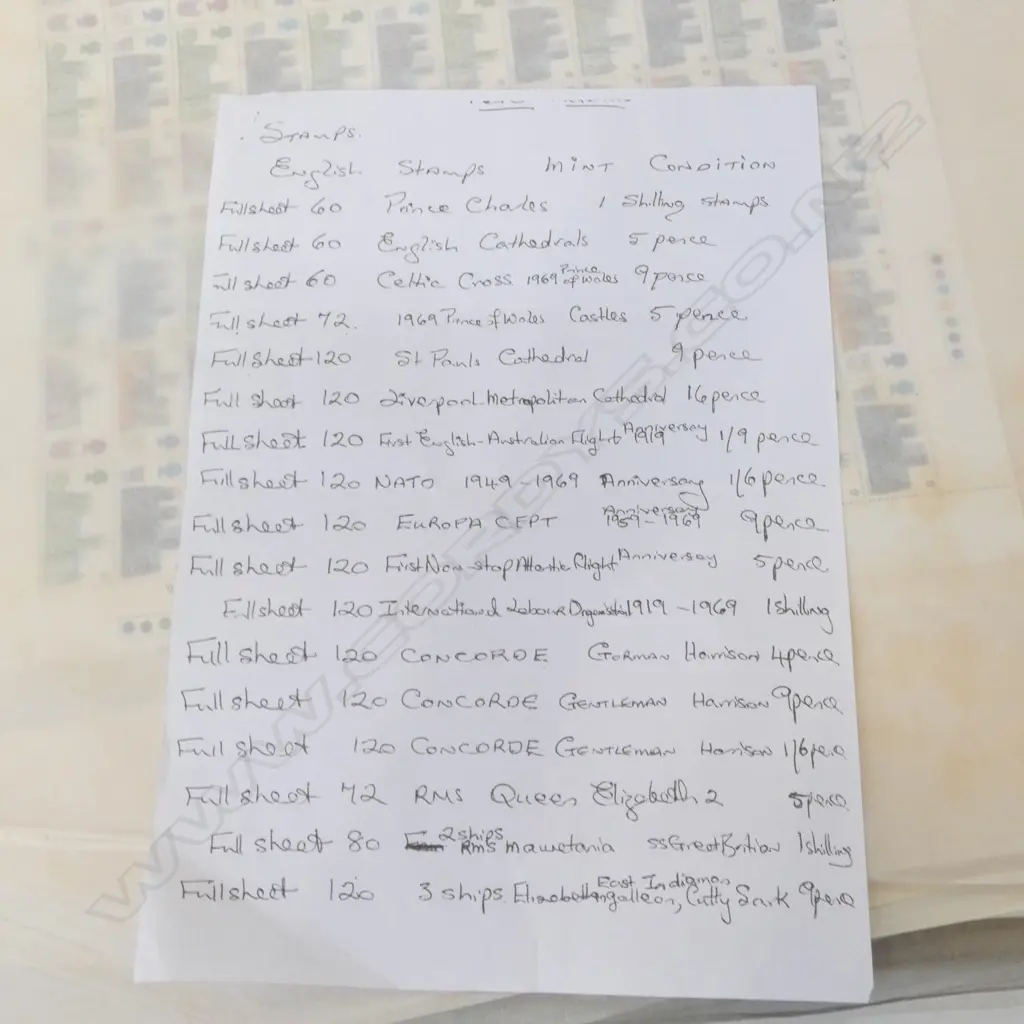 STAMPS.
English Stamps MINT CONDITION
Full sheet 60 Prince Charles 1 Shilling stamps
Full sheet 60 English Cathedrals 5 pence
Full sheet 60 Celtic Cross 1969 Prince of Wales 9 pence
Full sheet 72. 1969 Prince of Wales Castles 5 pence
Full Sheet 120 St Pauls Cathedral 9 pence
Full Sheet 120 Liverpool Metropolitan Cathedral 16 pence
Full sheet 120 First English-Australian Flight Anniversary 1919 1/9 pence
Full sheet 120 NATO 1949-1969 Anniversary 1/6 pence
Full sheet 120 EUROPA CEPT Anniversary 1959-1969 9 pence
Full sheet 120 First Non-stop Atlantic Flight Anniversary 5 pence
Full sheet 120 International Labour Organisation 1919-1969 1 shilling
Full sheet 120 CONCORDE Harrison 4 pence
Full sheet 120 CONCORDE GENTLEMAN Harrison 9 pence
Full sheet 120 CONCORDE GENTLEMAN Harrison 1/6 pence
Full sheet 72 RMS Queen Elizabeth 2 5 pence
Full sheet 80 2 ships RMS Mauretania SS Great Britian 1 shilling
Full sheet 120 3 ships. Elizabethan galleon, East Indiaman Cutty Sark 9 pence